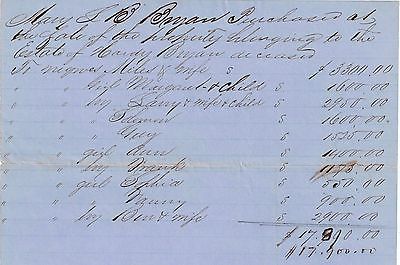 Mary J. E. Bryan Purchased at
the Sale of the property belonging to the
Estate of Hardy Bryan deceased
To negroes Miles & wife $ $ 3300.00
" Girl Margaret & child $ 1600.00
" boy Larry & wife & child $ 2950.00
" " $ 1600.00
" " Guy $ 1525.00
" girl Ann $ 1400.00
" boy Frank $ 1175.00
" girl Sophia $ 550.00
" " Nanny $ 900.00
" boy Ben & wife $ 2900.00
$ 17,890.00
$ 17,900.00